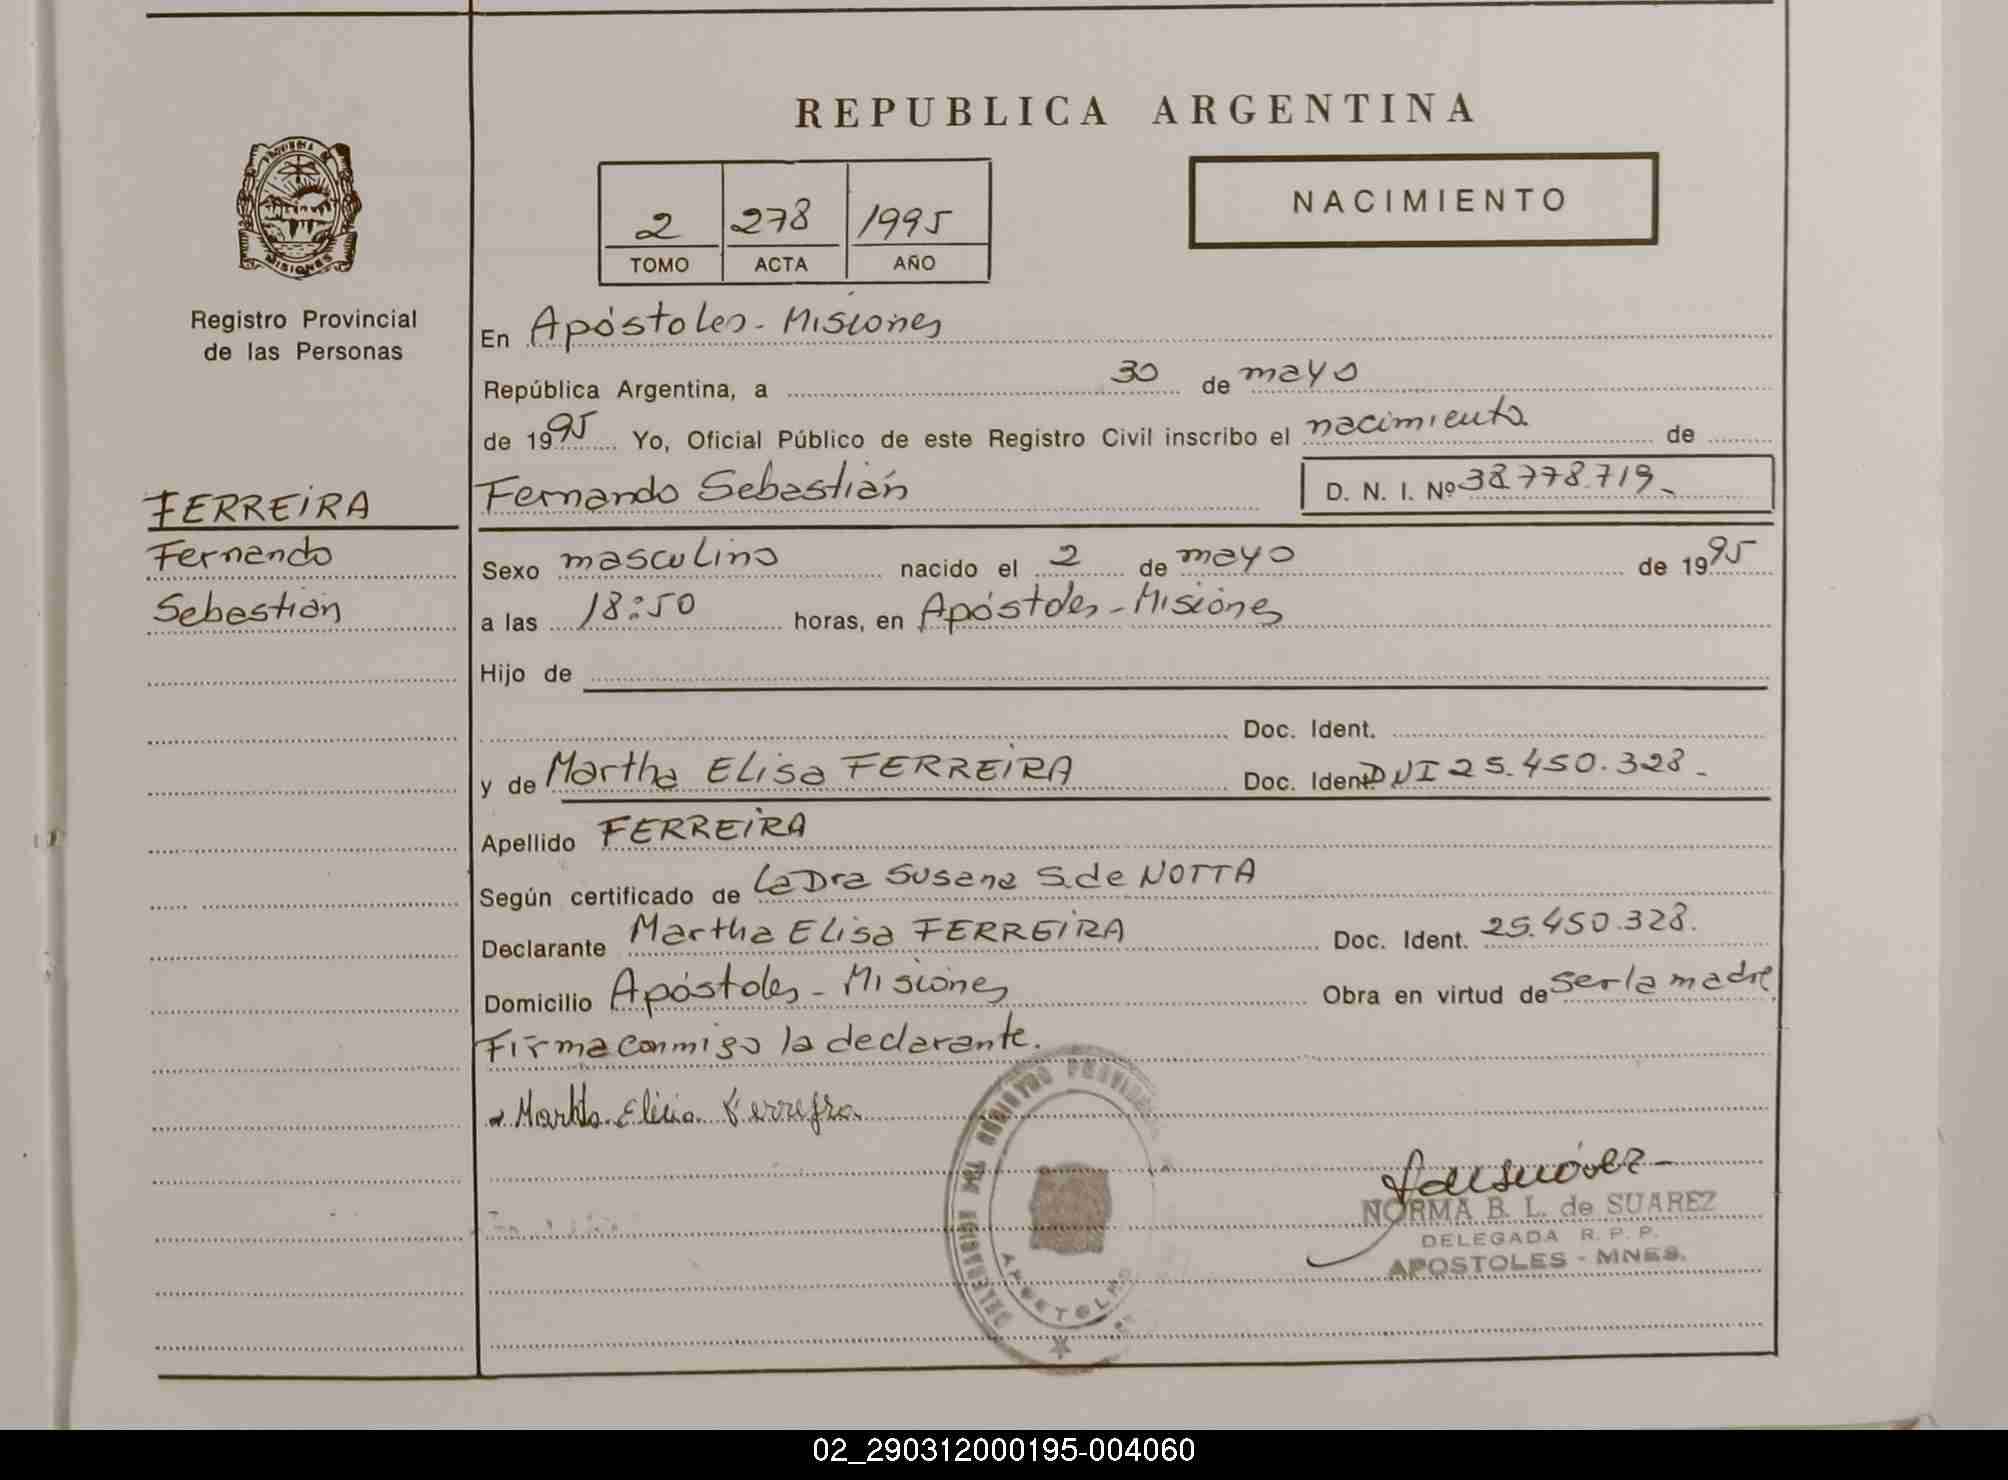 REPUBLICA ARGENTINA
PROVINCIA DE
MISIONES
Registro Provincial
de las Personas
2 278 1995
TOMO ACTA AÑO
NACIMIENTO
En Apóstoles - Misiones
República Argentina, a 30 de mayo
de 1995 Yo, Oficial Público de este Registro Civil inscribo el nacimiento de
FERREIRA Fernando Sebastián D. N. I. Nº 38.778.719
Fernando Sexo masculino nacido el 2 de mayo de 1995
Sebastián a las 18:50 horas, en Apóstoles - Misiones
Hijo de
Doc. Ident.
y de Martha Elisa FERREIRA Doc. Ident. DNI 25.450.328.-
Apellido FERREIRA
Según certificado de La Dra Susana S. de NOTTA
Declarante Martha Elisa FERREIRA Doc. Ident. 25.450.328.
Domicilio Apóstoles - Misiones Obra en virtud de ser la madre
Firma conmigo la declarante.
NORMA B. L. de SUAREZ
DELEGADA R. P. P.
APOSTOLES - MNES.
02_290312000195-004060